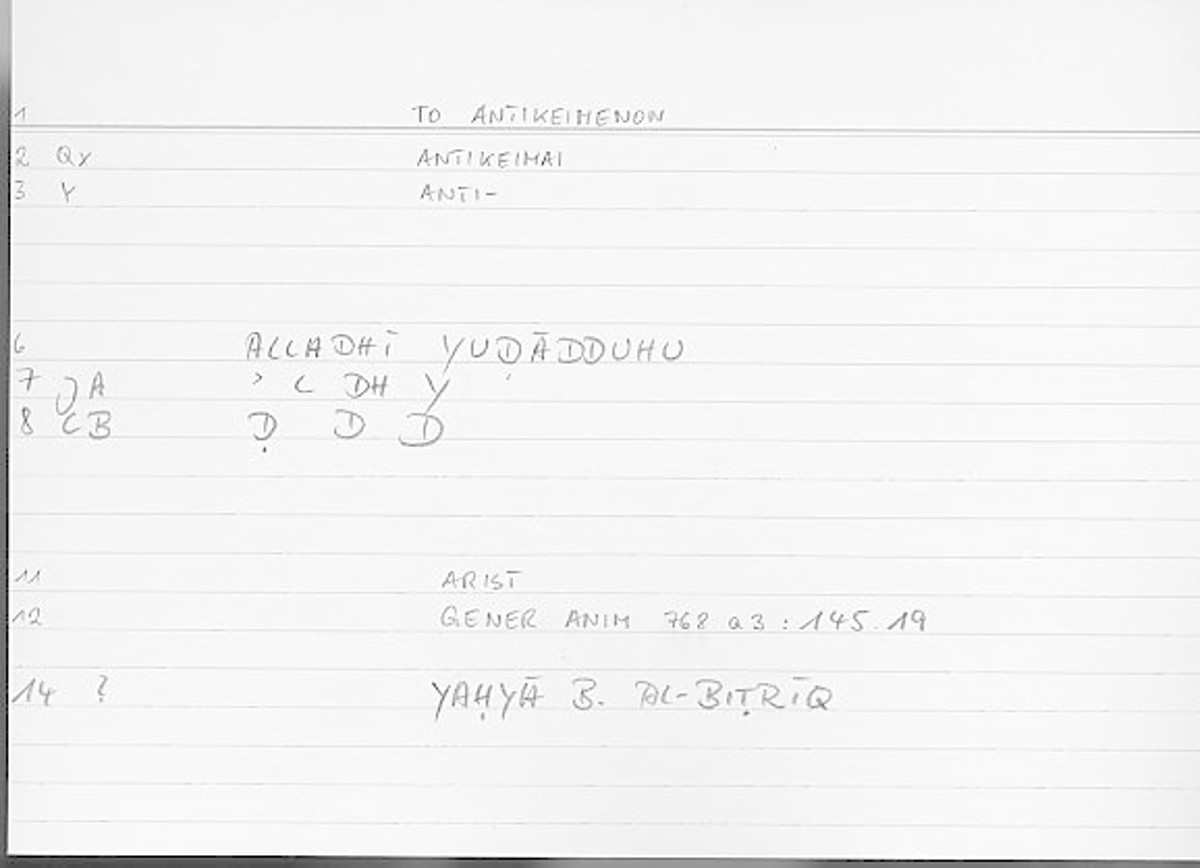 1 TO ANTIKEIMENON
2 Qy ANTIKEIMAI
3 Y ANTI-
6 ALLADHĪ YUḌĀDDUHU
7 JA › L DH Y
8 LB Ḍ D D
11 ARIST
12 GENER ANIM 768 a3 : 145.19
14 ? YAḤYĀ B. AL-BIṬRĪQ